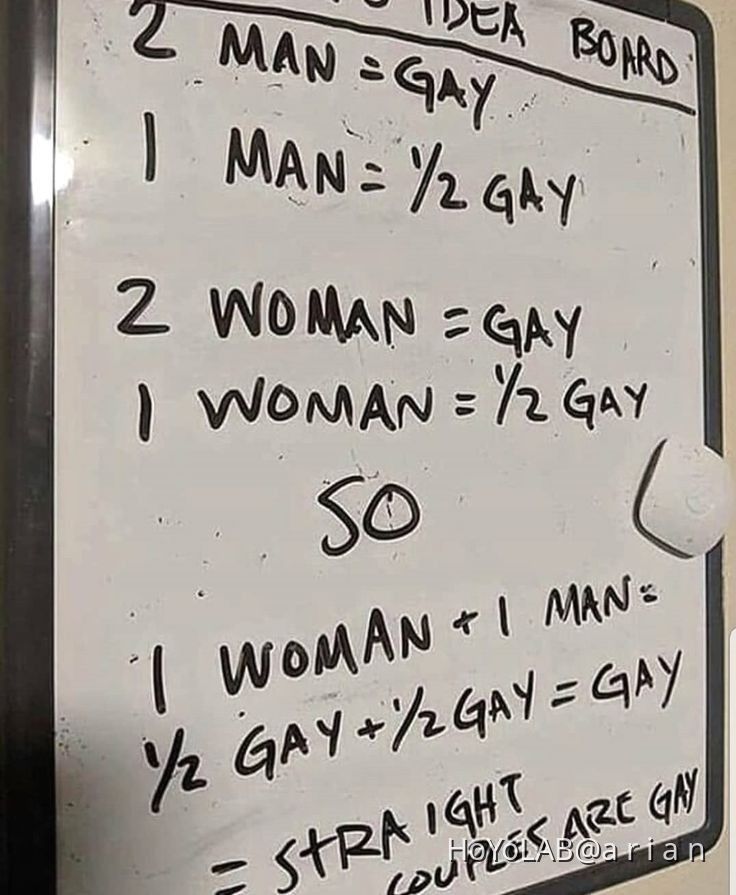 IDEA BOARD
2 MAN = GAY
1 MAN = 1/2 GAY
2 WOMAN = GAY
1 WOMAN = 1/2 GAY
SO
1 WOMAN + 1 MAN =
1/2 GAY + 1/2 GAY = GAY
= STRAIGHT
COUPLES ARE GAY
HoYoLAB@arian